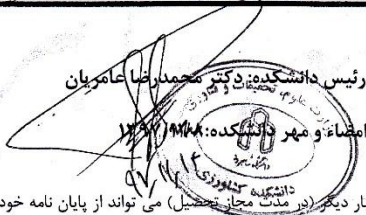 رئیس دانشکده: دکتر محمدرضا عامریان
وزارت علوم، تحقیقات و فناوری
امضاء و مهر دانشکده:
دانشکده کشاورزی
بار دیگر (در مدت مجاز تحصیل) می تواند از پایان نامه خود